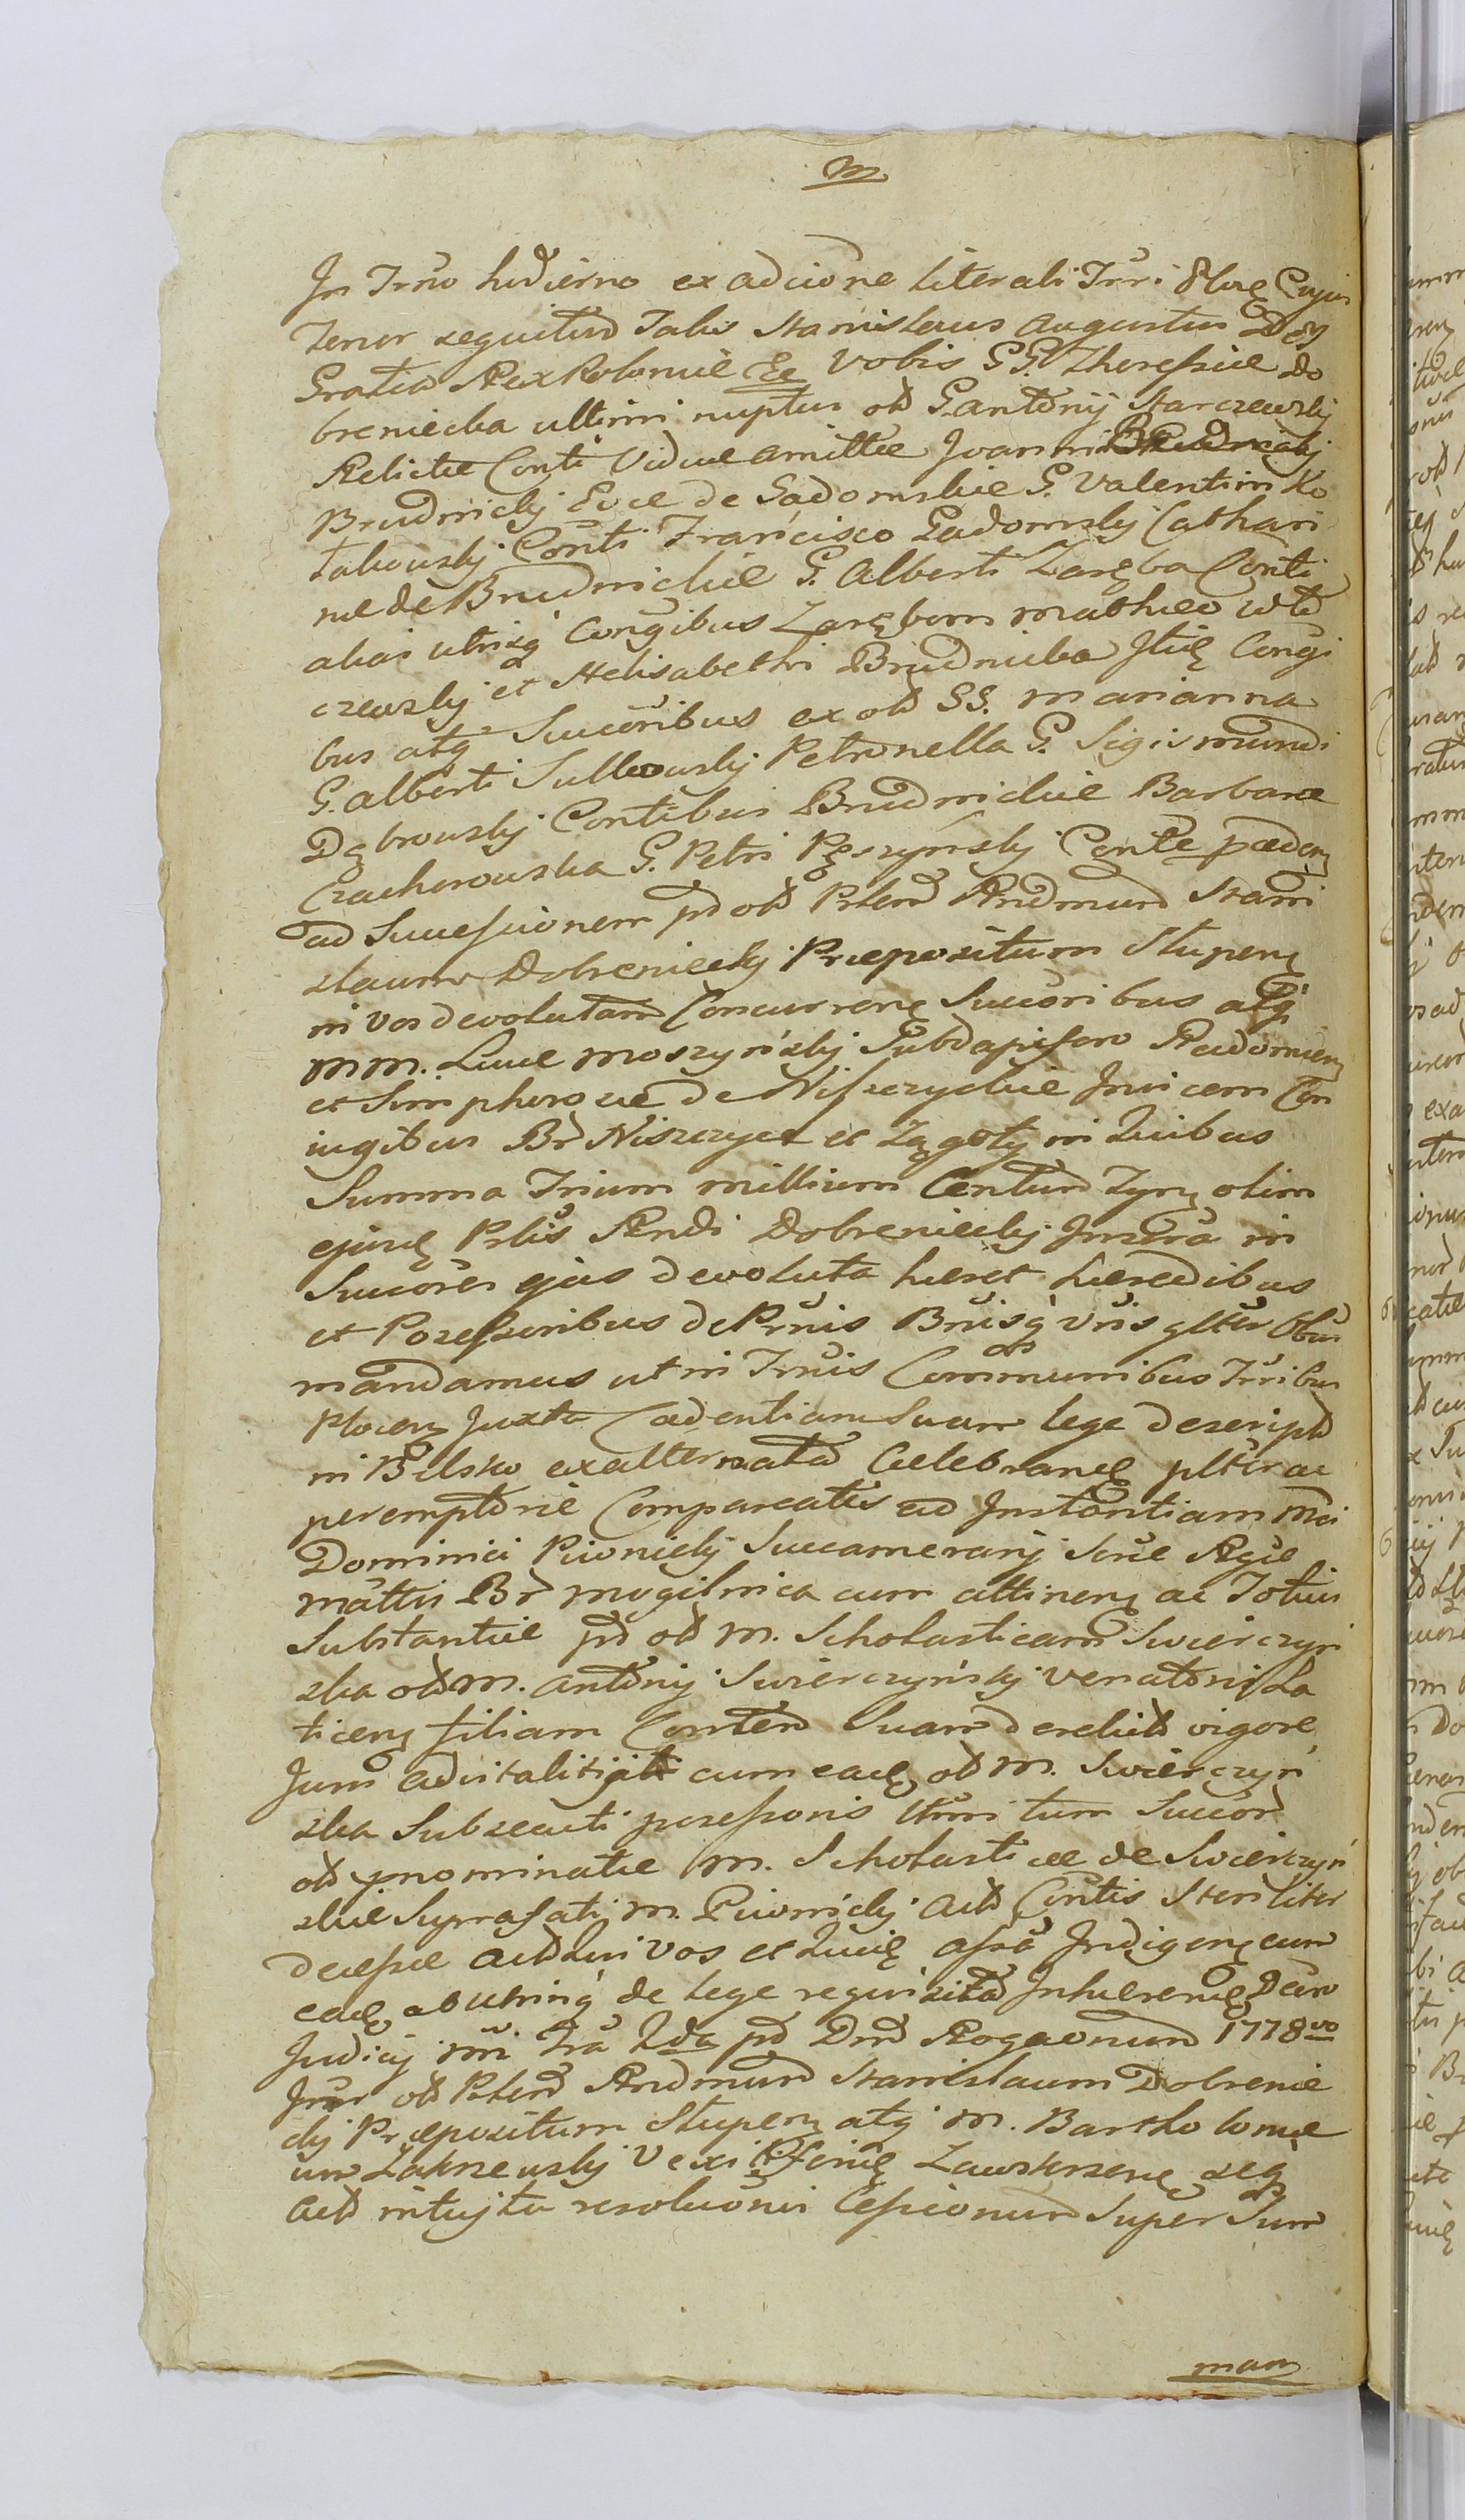 M
In Trno hodierno ex adcione literali Trri Cujus
Tenor sequitur Talis Stanislaus Augustus Dei
Gratia Rex Poloniæ Ee Vobis G G. Theressiæ Do
breniecka ultimi nuptus od G. Antonij Starczewsky
Relictæ Conti Viduæ amittæ Joanni
Brudnicky Evæ de Gadomskie G. Valentini Ko
takowsky Conti Francisco Gadomsky Cathari
næ de Brudnickie G. Alberti Zaręba Conti
alias utrisq Congibus Zarębom Mathæo
czewsky et Helisabethi Brudnicka Congi
bus atq Succoribus ex od GG. Marianna
G. Alberti Sulkowsky Petronella G. Sigismundi
Dąbrowsky Contibus Brudnickie Barbaræ
Czachorowska G. Petri Pęszynsky Conte
ad Sucessionem pd od Rlend Andmund Stani
slaum Dobreniecky Præpositum Stupen
in vos devolutam Concurren Succoribus atq
MM. Lucæ Moszyńsky Subdapifero Radomien
et Simphorosæ de Niszczyckie Invicem Con
iugibus Br Niszczyce et Zągoty in quibus
Summa Trium millium Centum Tyn olim
ejusd Rlis Andi Dobreniecky Inscra in
Succores ejus devoluta hæret hæredibus
et Possessoribus de Prnis Bnisq Vris glter Obus
mandamus ut in Trnis Communibus Trribus
Plocen Juxta Cadentiam Suam lege descripta
in Bielsko exalternata Celebrand plter ac
peremptorie Compareatis ad Instantiam Mci
Dominici Piwnicky Succamerarij Scræ Rgiæ
Mattis Br Mogilnica cum attinen ac Totius
Substantiæ pd od M. Scholasticam Swierczyń
ska od M. Antonij Swierczyńsky Venatoris Ra
ticen filiam Contem Suam derelicta vigore
Juris advitalitij cum ead od M. Swierczyń
ska Subsecuti possessoris tum Succor
od pnominatæ M. Scholasticæ de Swierczyń
skie Suprafati M. Piwnicky Contis Steriliter
decessæ Actd Qui vos et Indigen cum
ead ab utrinq de lege requisita Inhæren Decro
Judicij Tra 2da pd Dnd Rogaonum 1778vo
od Rlend Andmund Stanislaum Dobrenie
cky Præpositum Stupen atq M. Bartholomæ
um Zakrzewsky Vexi Zawskrzen
Actd intuitu resolucionis Cessionum Super Sum
mam